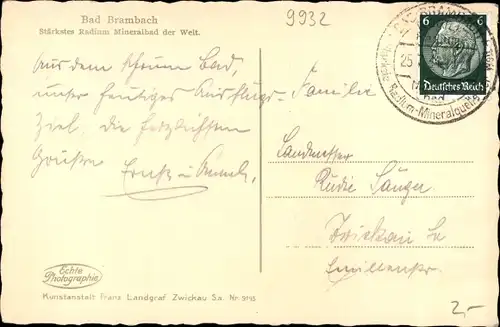 Bad Brambach
Stärkstes Radium Mineralbad der Welt.
9932
6 6
Deutsches Reich
Radium-Mineralquelle
Aus dem schönen Bad,
unser heutiges Ausflugs-
Ziel, die herzlichsten
Grüße
Ernst u.
Familie
Landmesser
Rudi Sänger
Zwickau Sa
Echte
Photographie
Kunstanstalt Franz Landgraf Zwickau Sa. Nr. 9145
2,-